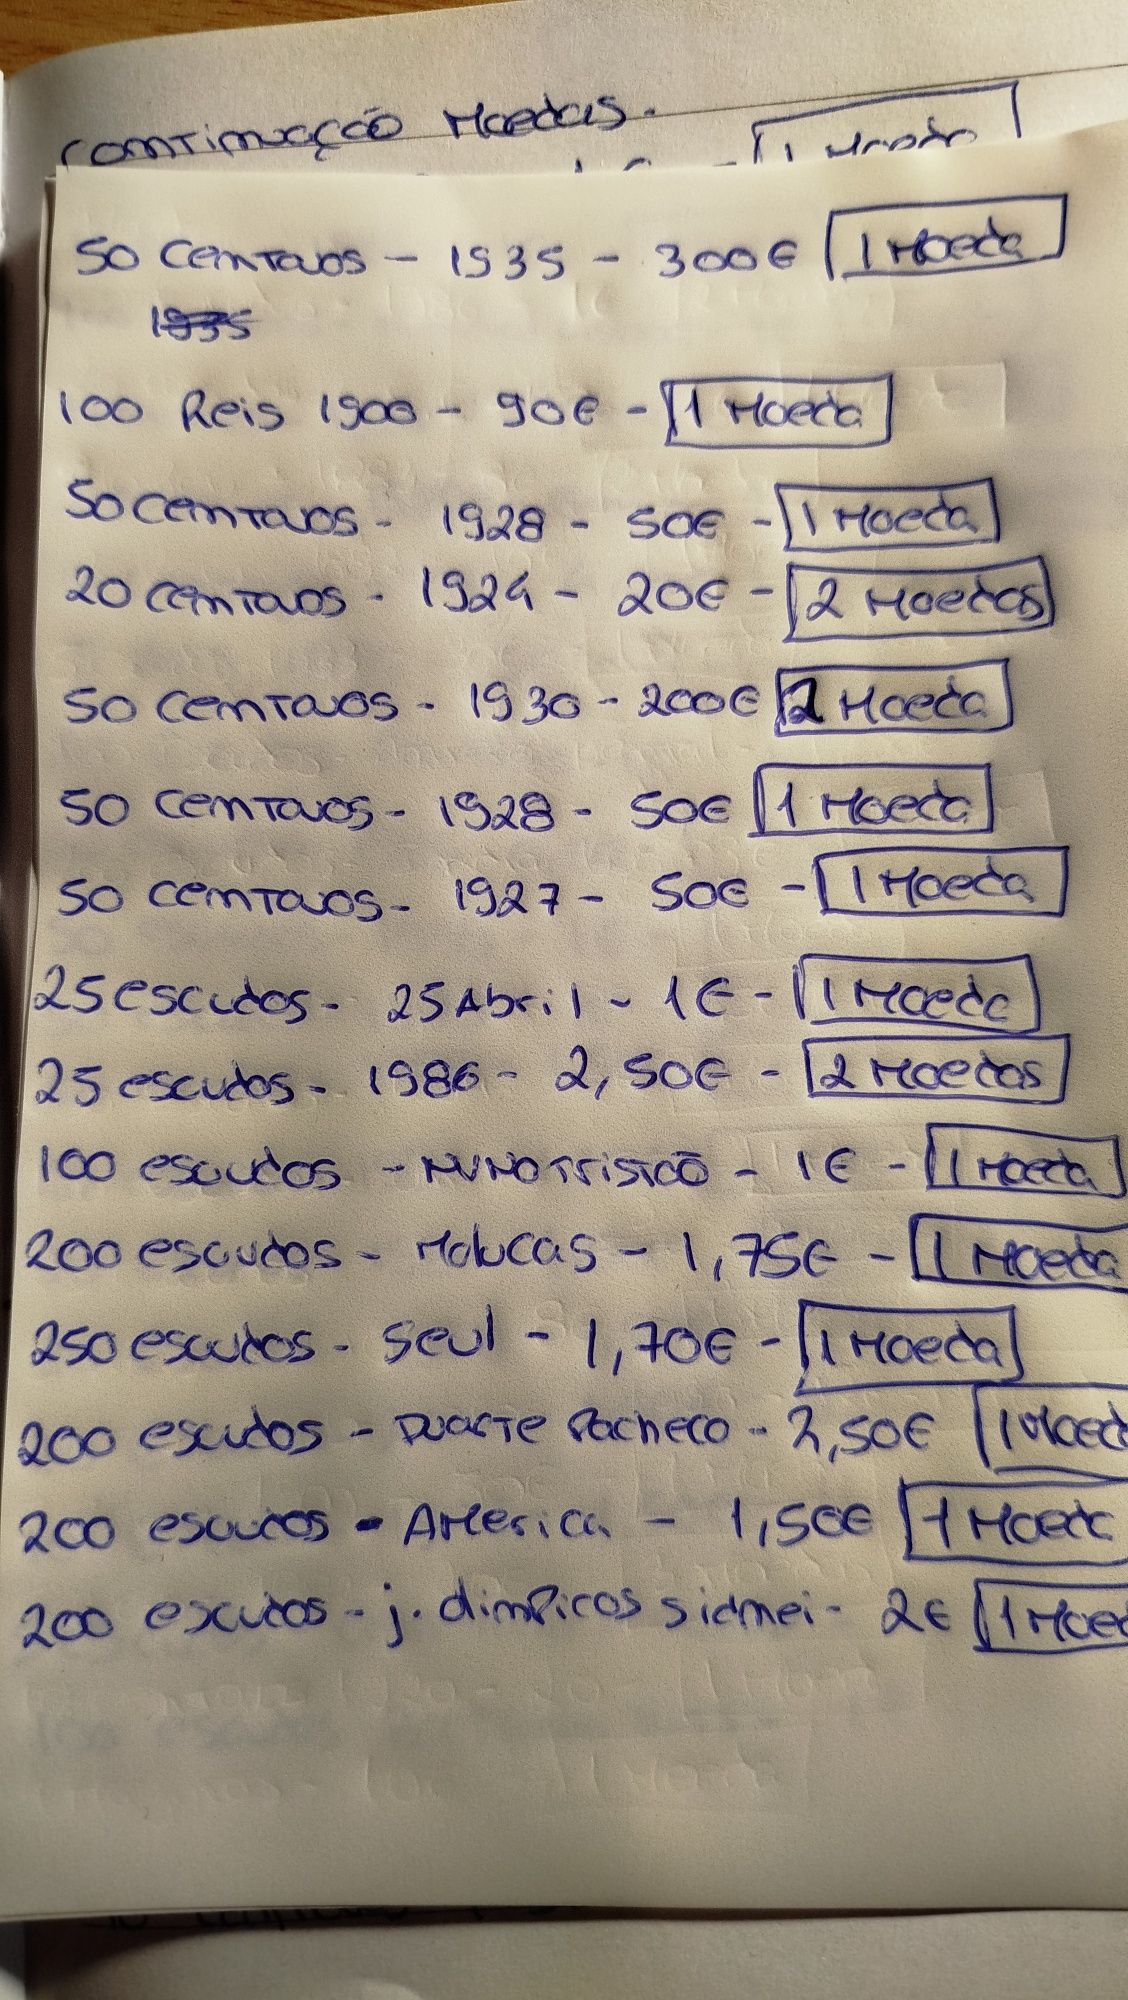 Continuação Moedas.
1 Moeda
50 Centavos - 1935 - 300€ 1 Moeda
1935
100 Reis 1900 - 90€ - 1 Moeda
50 centavos - 1928 - 50€ - 1 Moeda
20 centavos - 1924 - 20€ - 2 Moedas
50 centavos - 1930 - 200€ 2 Moeda
50 centavos - 1928 - 50€ 1 Moeda
50 centavos - 1927 - 50€ - 1 Moeda
25 escudos - 25 Abril - 1€ - 1 Moeda
25 escudos - 1986 - 2,50€ - 2 Moedas
100 escudos - Nuno Tristão - 1€ - 1 Moeda
200 escudos - Molucas - 1,75€ - 1 Moeda
250 escudos - Seul - 1,70€ - 1 Moeda
200 escudos - Duarte Pacheco - 2,50€ 1 Moed
200 escudos - America - 1,50€ 1 Moeda
200 escudos - j. olimpicos sidnei - 2€ 1 Moed